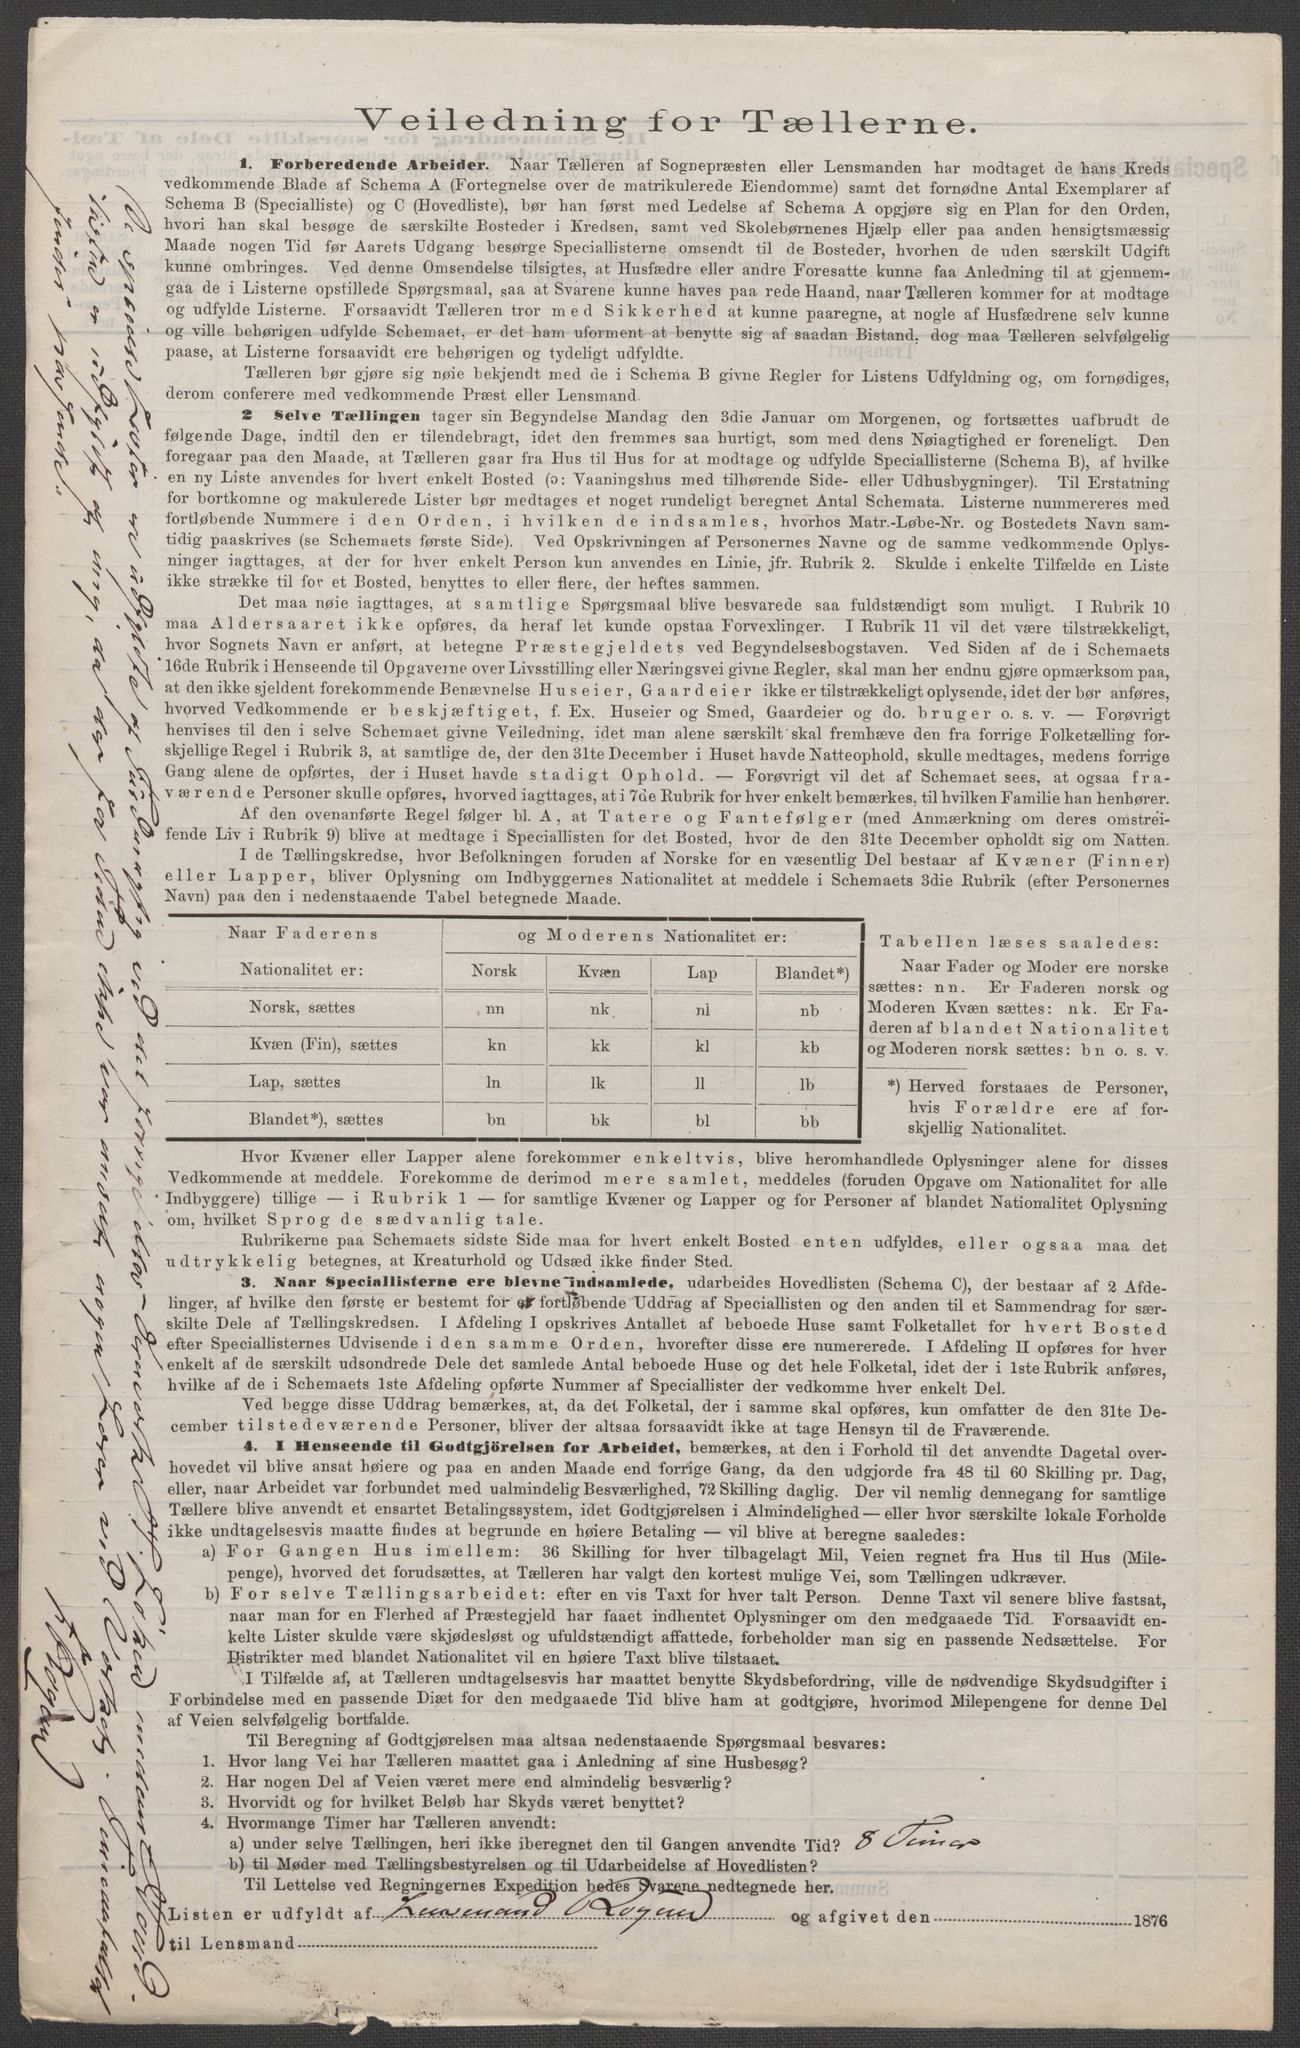 Veiledning for Tællerne.
1. Forberedende Arbeider. Naar Tælleren af Sognepræsten eller Lensmanden har modtaget de hans Kreds
vedkommende Blade af Schema A (Fortegnelse over de matrikulerede Eiendomme) samt det fornødne Antal Exemplarer af
Schema B (Specialliste) og C (Hovedliste), bør han først med Ledelse af Schema A opgjøre sig en Plan for den Orden,
hvori han skal besøge de særskilte Bosteder i Kredsen, samt ved Skolebørnenes Hjælp eller paa anden hensigtsmæssig
Maade nogen Tid før Aarets Udgang besørge Speciallisterne omsendt til de Bosteder, hvorhen de uden særskilt Udgift
kunne ombringes. Ved denne Omsendelse tilsigtes, at Husfædre eller andre Foresatte kunne faa Anledning til at gjennem-
gaa de i Listerne opstillede Spørgsmaal, saa at Svarene kunne haves paa rede Haand, naar Tælleren kommer for at modtage
og udfylde Listerne. Forsaavidt Tælleren tror med Sikkerhed at kunne paaregne, at nogle af Husfædrene selv kunne
og ville behørigen udfylde Schemaet, er det ham uforment at benytte sig af saadan Bistand, dog maa Tælleren selvfølgelig
paase, at Listerne forsaavidt ere behørigen og tydeligt udfyldte.
Tælleren bør gjøre sig nøie bekjendt med de i Schema B givne Regler for Listens Udfyldning og, om fornødiges,
derom conferere med vedkommende Præst eller Lensmand.
2 Selve Tællingen tager sin Begyndelse Mandag den 3die Januar om Morgenen, og fortsættes uafbrudt de
følgende Dage, indtil den er tilendebragt, idet den fremmes saa hurtigt, som med dens Nøiagtighed er foreneligt. Den
foregaar paa den Maade, at Tælleren gaar fra Hus til Hus for at modtage og udfylde Speciallisterne (Schema B), af hvilke
en ny Liste anvendes for hvert enkelt Bosted (ɔ: Vaaningshus med tilhørende Side- eller Udhusbygninger). Til Erstatning
for bortkomne og makulerede Lister bør medtages et noget rundeligt beregnet Antal Schemata. Listerne nummereres med
fortløbende Nummere i den Orden, i hvilken de indsamles, hvorhos Matr.-Løbe-Nr. og Bostedets Navn sam-
tidig paaskrives (se Schemaets første Side). Ved Opskrivningen af Personernes Navne og de samme vedkommende Oplys-
ninger iagttages, at der for hver enkelt Person kun anvendes en Linie, jfr. Rubrik 2. Skulde i enkelte Tilfælde en Liste
ikke strække til for et Bosted, benyttes to eller flere, der heftes sammen.
Det maa nøie iagttages, at samtlige Spørgsmaal blive besvarede saa fuldstændigt som muligt. I Rubrik 10
maa Aldersaaret ikke opføres, da heraf let kunde opstaa Forvexlinger. I Rubrik 11 vil det være tilstrækkeligt,
hvor Sognets Navn er anført, at betegne Præstegjeldets ved Begyndelsesbogstaven. Ved Siden af de i Schemaets
16de Rubrik i Henseende til Opgaverne over Livsstilling eller Næringsvei givne Regler, skal man her endnu gjøre opmærksom paa,
at den ikke sjeldent forekommende Benævnelse Huseier, Gaardeier ikke er tilstrækkeligt oplysende, idet der bør anføres,
hvorved Vedkommende er beskjæftiget, f. Ex. Huseier og Smed, Gaardeier og do. bruger o. s. v. — Forøvrigt
henvises til den i selve Schemaet givne Veiledning, idet man alene særskilt skal fremhæve den fra forrige Folketælling for-
skjellige Regel i Rubrik 3, at samtlige de, der den 31te December i Huset havde Natteophold, skulle medtages, medens forrige
Gang alene de opførtes, der i Huset havde stadigt Ophold. — Forøvrigt vil det af Schemaet sees, at ogsaa fra-
værende Personer skulle opføres, hvorved iagttages, at i 7de Rubrik for hver enkelt bemærkes, til hvilken Familie han henhører.
Af den ovenanførte Regel følger bl. A, at Tatere og Fantefølger (med Anmærkning om deres omstrei-
fende Liv i Rubrik 9) blive at medtage i Speciallisten for det Bosted, hvor de den 31te December opholdt sig om Natten.
I de Tællingskredse, hvor Befolkningen foruden af Norske for en væsentlig Del bestaar af Kvæner (Finner)
eller Lapper, bliver Oplysning om Indbyggernes Nationalitet at meddele i Schemaets 3die Rubrik (efter Personernes
Navn) paa den i nedenstaaende Tabel betegnede Maade.
Naar Faderens og Moderens Nationalitet er:
Nationalitet er: Norsk Kvæn Lap Blandet*)
Norsk, sættes nn nk nl nb
Kvæn (Fin), sættes kn kk kl kb
Lap, sættes ln lk ll lb
Blandet*), sættes bn bk bl bb
Tabellen læses saaledes:
Naar Fader og Moder ere norske
sættes: nn. Er Faderen norsk og
Moderen Kvæn sættes: nk. Er Fa-
deren af blandet Nationalitet
og Moderen norsk sættes: bn o. s. v.
*) Herved forstaaes de Personer,
hvis Forældre ere af for-
skjellig Nationalitet.
Hvor Kvæner eller Lapper alene forekommer enkeltvis, blive heromhandlede Oplysninger alene for disses
Vedkommende at meddele. Forekomme de derimod mere samlet, meddeles (foruden Opgave om Nationalitet for alle
Indbyggere) tillige — i Rubrik 1 — for samtlige Kvæner og Lapper og for Personer af blandet Nationalitet Oplysning
om, hvilket Sprog de sædvanlig tale.
Rubrikerne paa Schemaets sidste Side maa for hvert enkelt Bosted enten udfyldes, eller ogsaa maa det
udtrykkelig betegnes, at Kreaturhold og Udsæd ikke finder Sted.
3. Naar Speciallisterne ere blevne indsamlede, udarbeides Hovedlisten (Schema C), der bestaar af 2 Afde-
linger, af hvilke den første er bestemt for et fortløbende Uddrag af Speciallisten og den anden til et Sammendrag for sær-
skilte Dele af Tællingskredsen. I Afdeling I opskrives Antallet af beboede Huse samt Folketallet for hvert Bosted
efter Speciallisternes Udvisende i den samme Orden, hvorefter disse ere numererede. I Afdeling II opføres for hver
enkelt af de særskilt udsondrede Dele det samlede Antal beboede Huse og det hele Folketal, idet der i 1ste Rubrik anføres,
hvilke af de i Schemaets 1ste Afdeling opførte Nummer af Speciallister der vedkomme hver enkelt Del.
Ved begge disse Uddrag bemærkes, at, da det Folketal, der i samme skal opføres, kun omfatter de den 31te De-
cember tilstedeværende Personer, bliver der altsaa forsaavidt ikke at tage Hensyn til de Fraværende.
4. I Henseende til Godtgjörelsen for Arbeidet, bemærkes, at den i Forhold til det anvendte Dagetal over-
hovedet vil blive ansat høiere og paa en anden Maade end forrige Gang, da den udgjorde fra 48 til 60 Skilling pr. Dag,
eller, naar Arbeidet var forbundet med ualmindelig Besværlighed, 72 Skilling daglig. Der vil nemlig dennegang for samtlige
Tællere blive anvendt et ensartet Betalingssystem, idet Godtgjørelsen i Almindelighed — eller hvor særskilte lokale Forholde
ikke undtagelsesvis maatte findes at begrunde en høiere Betaling — vil blive at beregne saaledes:
a) For Gangen Hus imellem: 36 Skilling for hver tilbagelagt Mil, Veien regnet fra Hus til Hus (Mile-
penge), hvorved det forudsættes, at Tælleren har valgt den kortest mulige Vei, som Tællingen udkræver.
b) For selve Tællingsarbeidet: efter en vis Taxt for hver talt Person. Denne Taxt vil senere blive fastsat,
naar man for en Flerhed af Præstegjeld har faaet indhentet Oplysninger om den medgaaede Tid. Forsaavidt en-
kelte Lister skulde være skjødesløst og ufuldstændigt affattede, forbeholder man sig en passende Nedsættelse. For
Distrikter med blandet Nationalitet vil en høiere Taxt blive tilstaaet.
I Tilfælde af, at Tælleren undtagelsesvis har maattet benytte Skydsbefordring, ville de nødvendige Skydsudgifter i
Forbindelse med en passende Diæt for den medgaaede Tid blive ham at godtgjøre, hvorimod Milepengene for denne Del
af Veien selvfølgelig bortfalde.
Til Beregning af Godtgjørelsen maa altsaa nedenstaaende Spørgsmaal besvares:
1. Hvor lang Vei har Tælleren maattet gaa i Anledning af sine Husbesøg?
2. Har nogen Del af Veien været mere end almindelig besværlig?
3. Hvorvidt og for hvilket Beløb har Skyds været benyttet?
4. Hvormange Timer har Tælleren anvendt:
a) under selve Tællingen, heri ikke iberegnet den til Gangen anvendte Tid? 8 Timer
b) til Møder med Tællingsbestyrelsen og til Udarbeidelse af Hovedlisten?
Til Lettelse ved Regningernes Expedition bedes Svarene nedtegnede her.
Listen er udfyldt af Lensmand og afgivet den 1876
til Lensmand